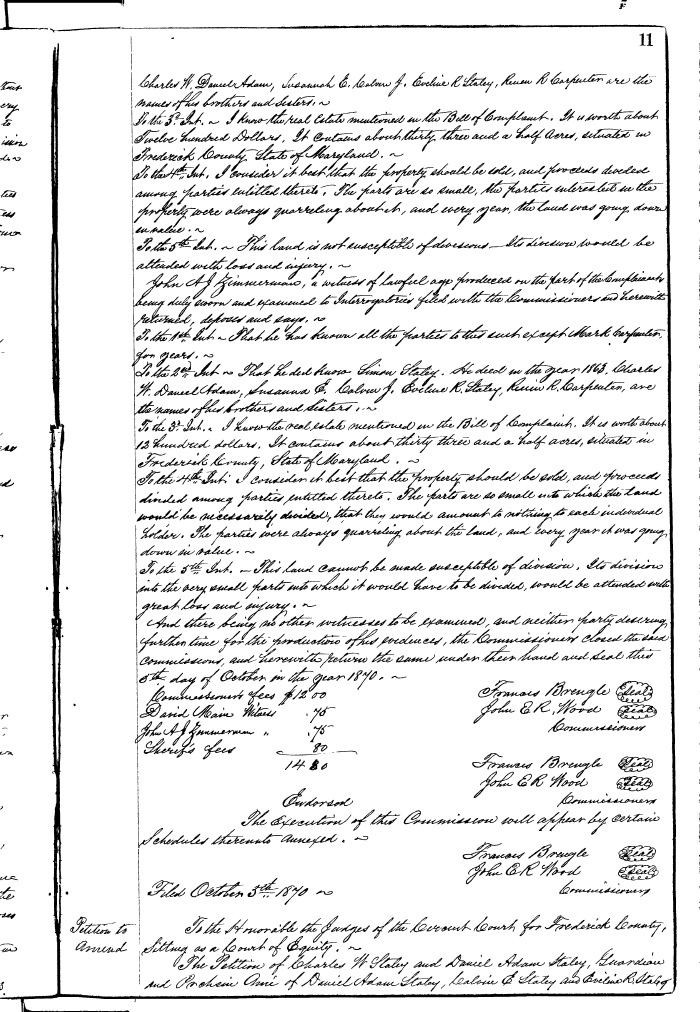 11
Charles W. Daniel Adam, Susannah E. Calvin J. Eveline R Staley, Rueun R Carpenter are the
names of his brothers and sisters. ~
To the 3d Int. ~ I know the real Estate mentioned in the Bill of Complaint. It is worth about
Twelve hundred Dollars. It contains about thirty three and a half Acres, situated in
Frederick County, State of Maryland. ~
To the 4th Int. I consider it best that the property should be sold, and proceeds divided
among parties entitled thereto. The parts are so small, the parties interested in the
property were always quarreling about it, and every year, the land was going down
in value. ~
To the 5th Int. ~ This land is not susceptible of divisions — Its division would be
attended with loss and injury. ~
John A J Zimmerman, a witness of lawful age produced on the part of the Complainants
being duly sworn and examined to Interrogatories filed with the Commissioners and herewith
returned, deposes and says. ~
To the 1st Int ~ That he has known all the parties to this suit except Mark Carpenter,
for years. ~
To the 2nd Int ~ That he did know Simon Staley. He died in the year 1863, Charles
W. Daniel Adam, Susanna E. Calvin J. Eveline R. Staley, Ruein R. Carpenter, are
the names of his brothers and sisters. ~
To the 3d Int. ~ I know the real estate mentioned in the Bill of Complaint. It is worth about
12 hundred dollars. It contains about thirty three and a half acres, situated in
Frederick County, State of Maryland. ~
To the 4th Int: I consider it best that the property should be sold, and proceeds
divided among parties entitled thereto. The parts are so small into which the Land
would be necessarily divided, that they would amount to nothing to each individual
holder. The parties were always quarreling about the land, and every year it was going
down in value. ~
To the 5th Int. — This land cannot be made susceptible of division. Its division
into the very small parts into which it would have to be divided, would be attended with
great loss and injury. ~
And there being no other witnesses to be examined, and neither party desiring
further time for the production of his evidences, the Commissioners closed the said
commissions, and herewith return the same under their hand and seal this
5th day of October in the year 1870. ~
Commissioners fees $12 00 Francis Brengle Seal
David Main Witness .75 John E R. Wood Seal
John A J Zimmerman " .75 Commissioners
Sheriff's fees 80
14 30 Francis Brengle Seal
John E R Wood Seal
Endorsed Commissioners
The Execution of this Commission will appear by certain
Schedules thereunto annexed. ~
Francis Brengle Seal
John E R Wood Seal
Filed October 5th 1870 ~ Commissioners
Petition to
Amend
To the Honorable the Judges of the Circuit Court for Frederick County,
Sitting as a Court of Equity. ~
The Petition of Charles W Staley and Daniel Adam Staley, Guardian
and Prochein Ami of Daniel Adam Staley, Calvin E Staley and Eveline R. Staley